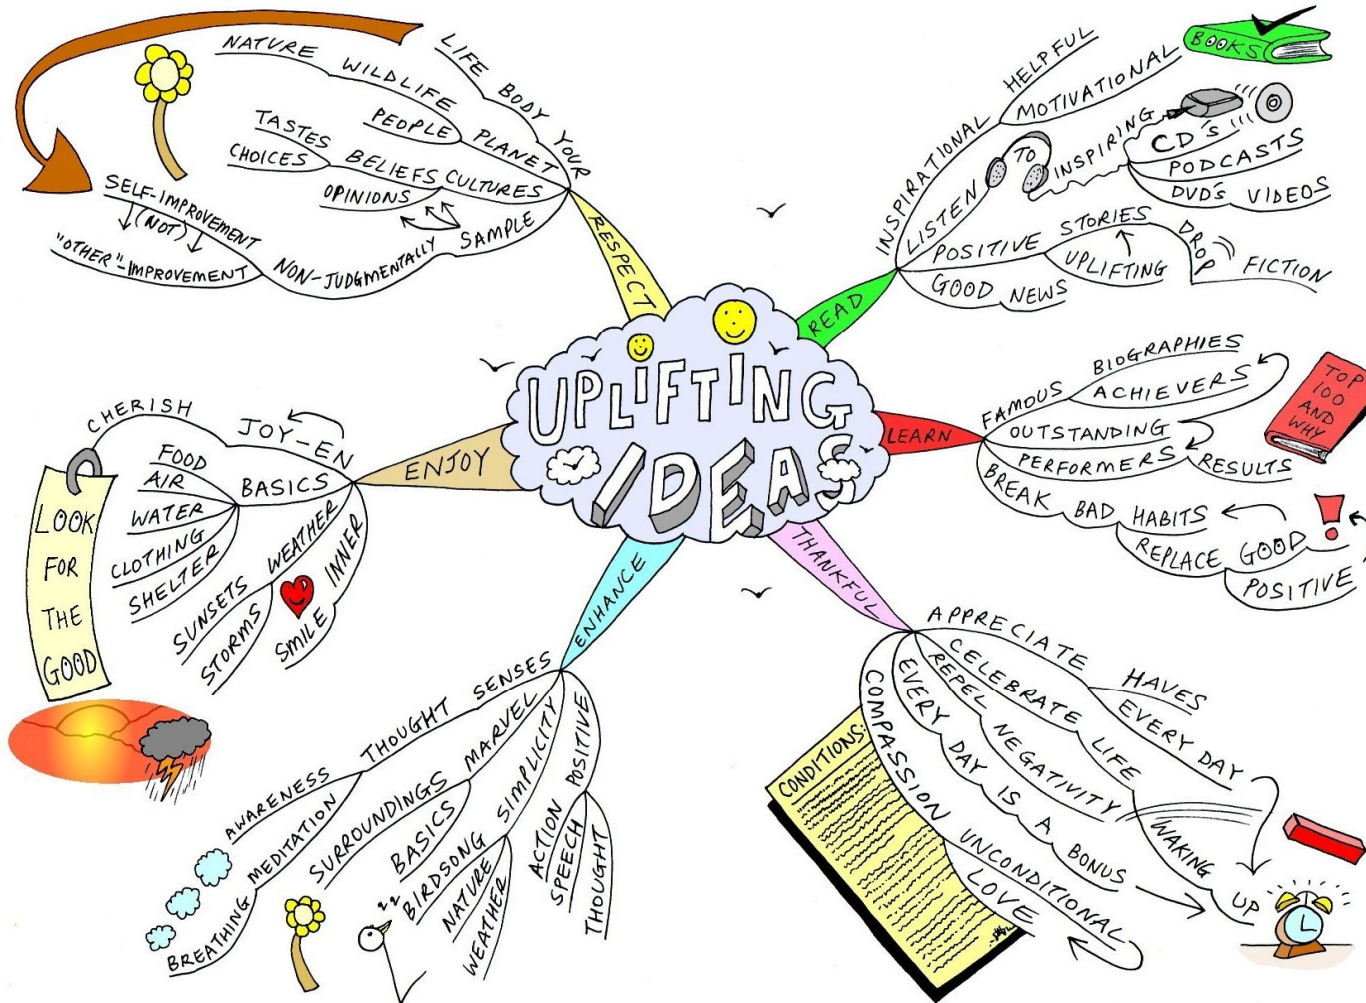 UPLIFTING
IDEAS
RESPECT
LIFE BODY YOUR
NATURE WILDLIFE PLANET
PEOPLE
TASTES BELIEFS CULTURES
CHOICES
OPINIONS
SAMPLE
NON-JUDGMENTALLY
SELF-IMPROVEMENT
(NOT)
"OTHER"-IMPROVEMENT
READ
INSPIRATIONAL HELPFUL
MOTIVATIONAL
BOOKS
LISTEN TO INSPIRING CD's
PODCASTS
DVD's VIDEOS
POSITIVE STORIES
UPLIFTING
DROP FICTION
GOOD NEWS
LEARN
FAMOUS BIOGRAPHIES
ACHIEVERS
OUTSTANDING
PERFORMERS RESULTS
BREAK BAD HABITS
REPLACE GOOD
POSITIVE
!
TOP
100
AND
WHY
THANKFUL
APPRECIATE HAVES
EVERY DAY
CELEBRATE LIFE
WAKING UP
REPEL NEGATIVITY
EVERY DAY IS A BONUS
COMPASSION UNCONDITIONAL
LOVE
CONDITIONS:
ENHANCE
SENSES THOUGHT AWARENESS
MEDITATION
BREATHING
MARVEL SURROUNDINGS
BASICS
SIMPLICITY BIRDSONG
NATURE
WEATHER
POSITIVE ACTION
SPEECH
THOUGHT
ENJOY
JOY-EN
CHERISH
BASICS
FOOD
AIR
WATER
CLOTHING
SHELTER
WEATHER SUNSETS
STORMS
INNER SMILE
LOOK
FOR
THE
GOOD